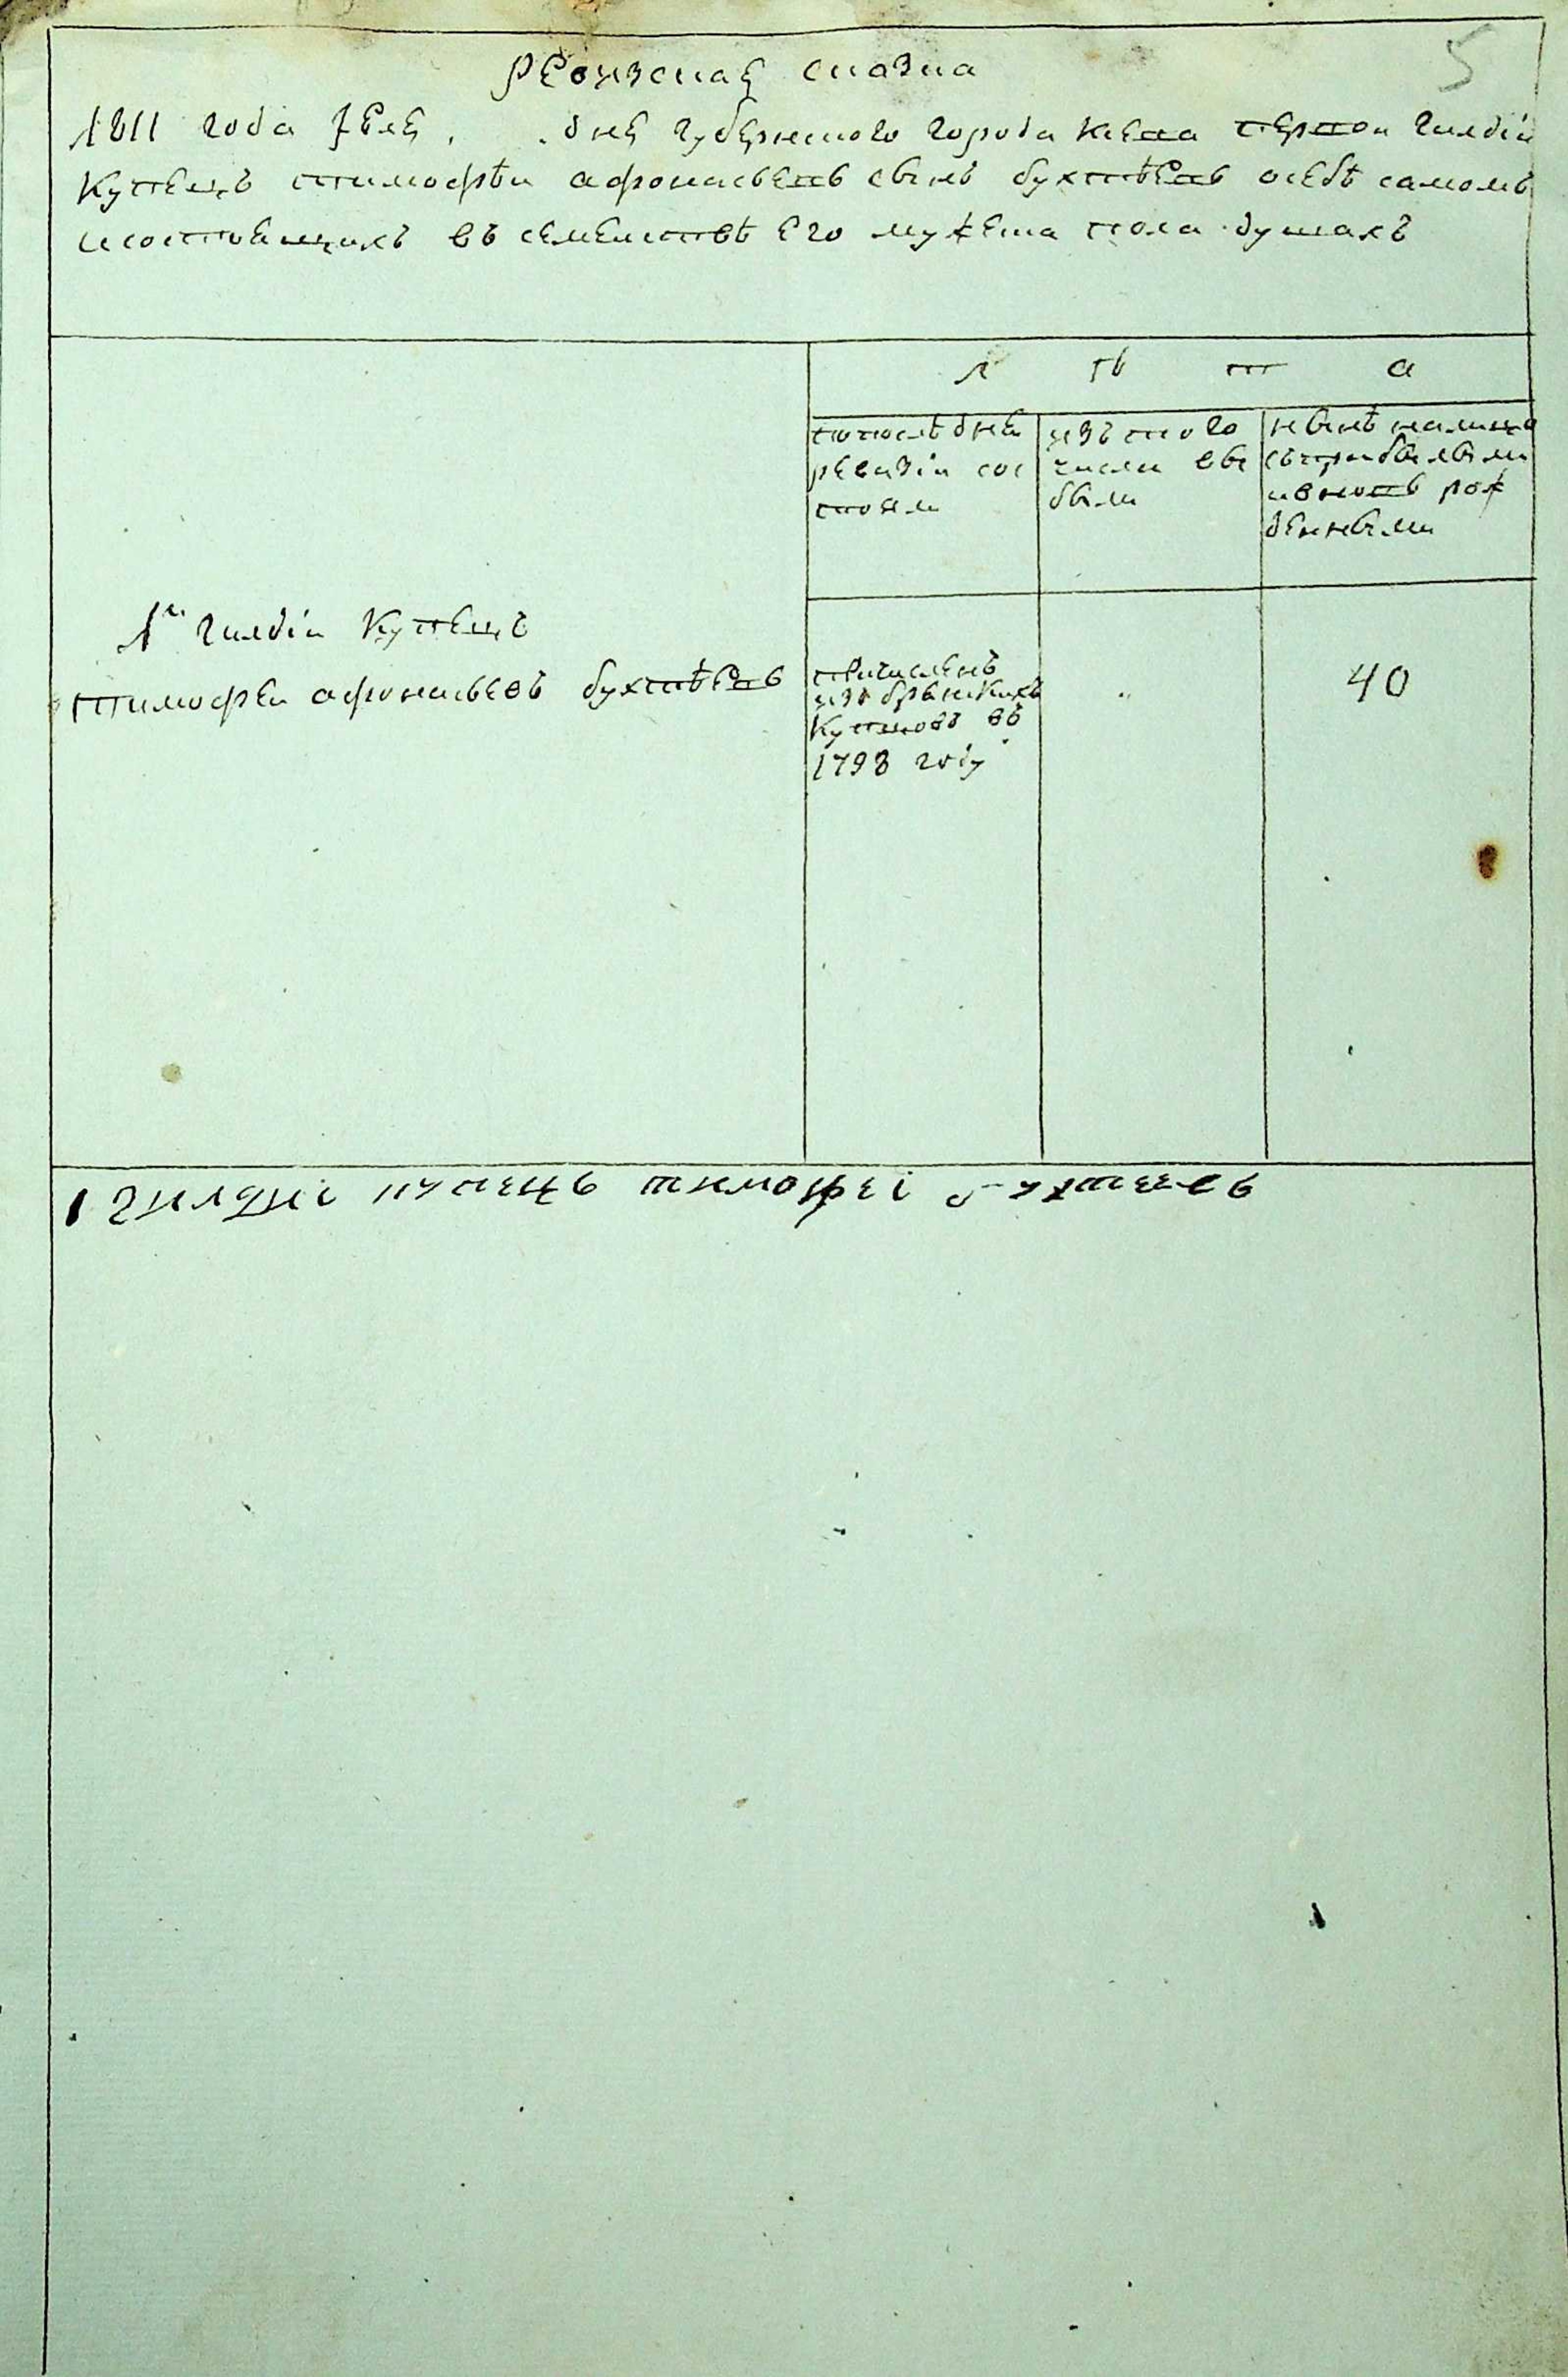 5
Ревизская сказка
1811 года июля . . дня губернскаго города Киева первой гилдіи
Купецъ Тимофѣй Афонасьевъ сынъ Бухтѣевъ о себѣ самомъ
и состоящихъ въ семействѣ его мужеска пола душахъ
Л Ѣ Т А
по последней ревизіи сос
тояли
изъ того
числа вы
были
нынѣ на лицо
съ прибылыми
и вновь рож
денными
1й гилдіи Купецъ
Тимофей Афонасьевъ Бухтѣевъ
причисленъ
изъ брянскихъ
Купцовъ въ
1798 году
40
1 гилдиі купецъ тимофеі бухтеевъ